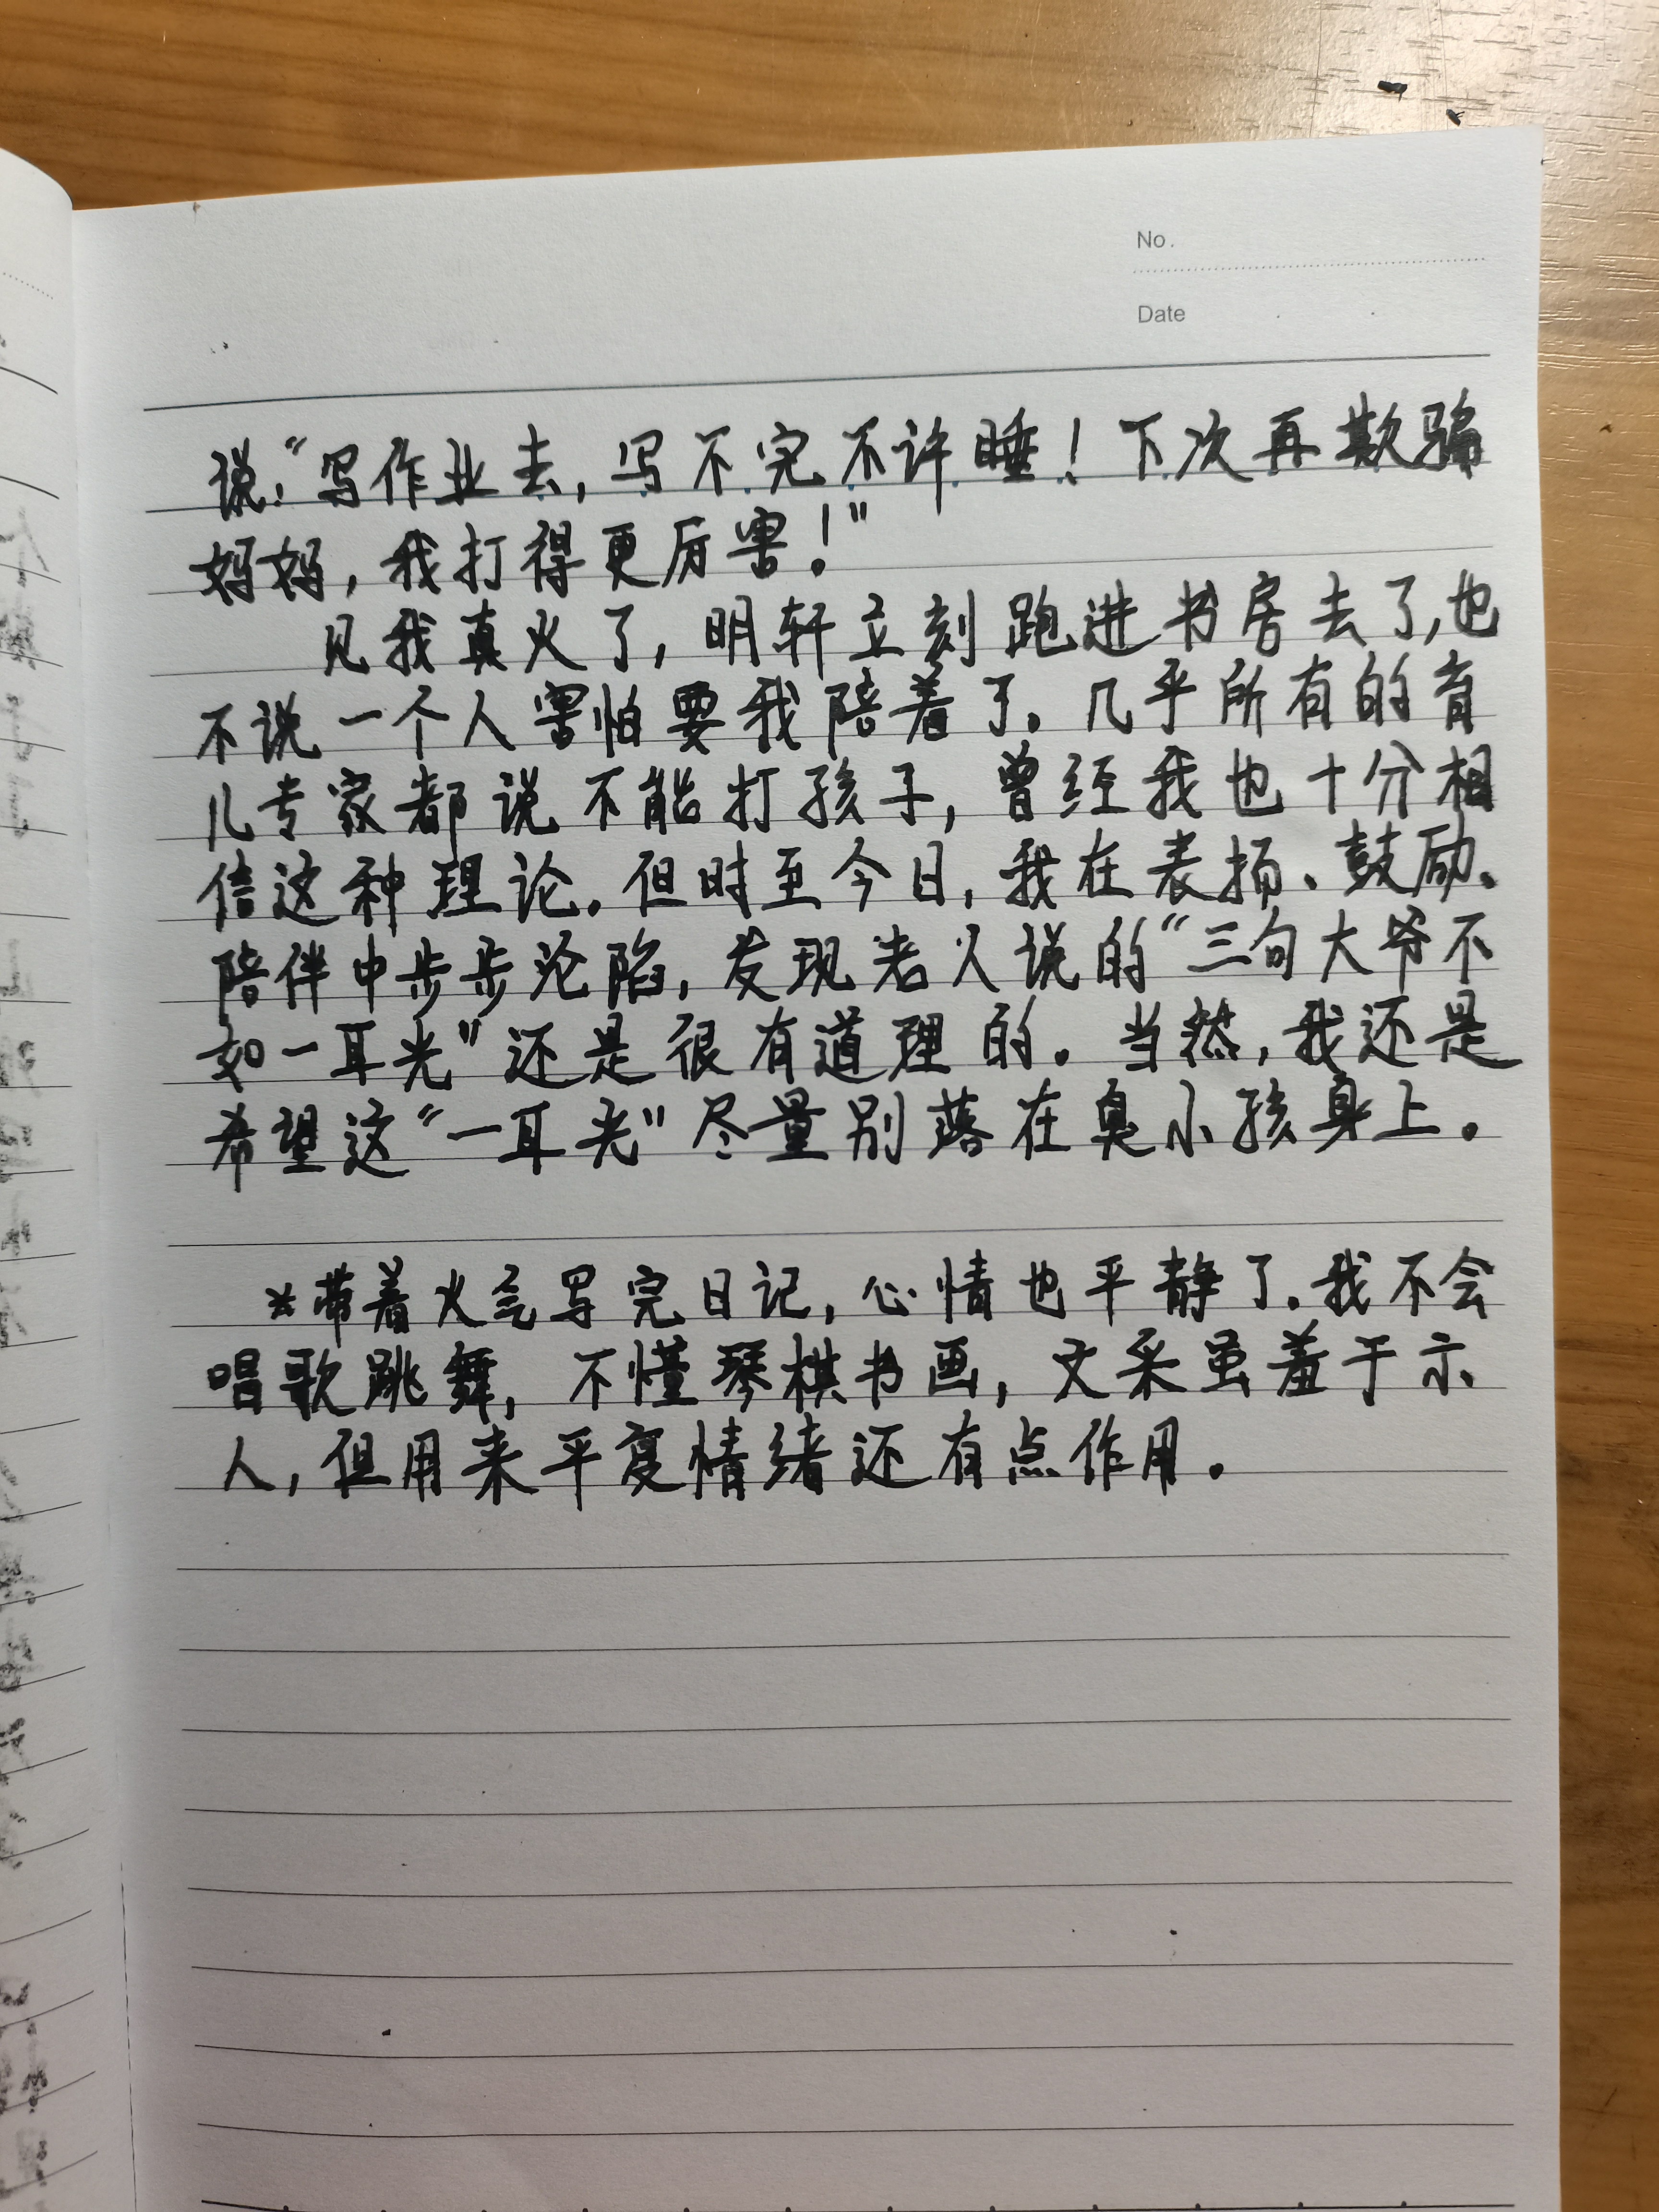 No.
Date
说:“写作业去,写不完不许睡!下次再欺骗
妈妈,我打得更厉害!”
见我真火了,明轩立刻跑进书房去了,也
不说一个人害怕要我陪着了。几乎所有的育
儿专家都说不能打孩子,曾经我也十分相
信这种理论。但时至今日,我在表扬、鼓励、
陪伴中步步沦陷,发现老人说的“三句大爷不
如一耳光”还是很有道理的。当然,我还是
希望这“一耳光”尽量别落在臭小孩身上。
*带着火气写完日记,心情也平静了。我不会
唱歌跳舞,不懂琴棋书画,文采虽羞于示
人,但用来平复情绪还有点作用。